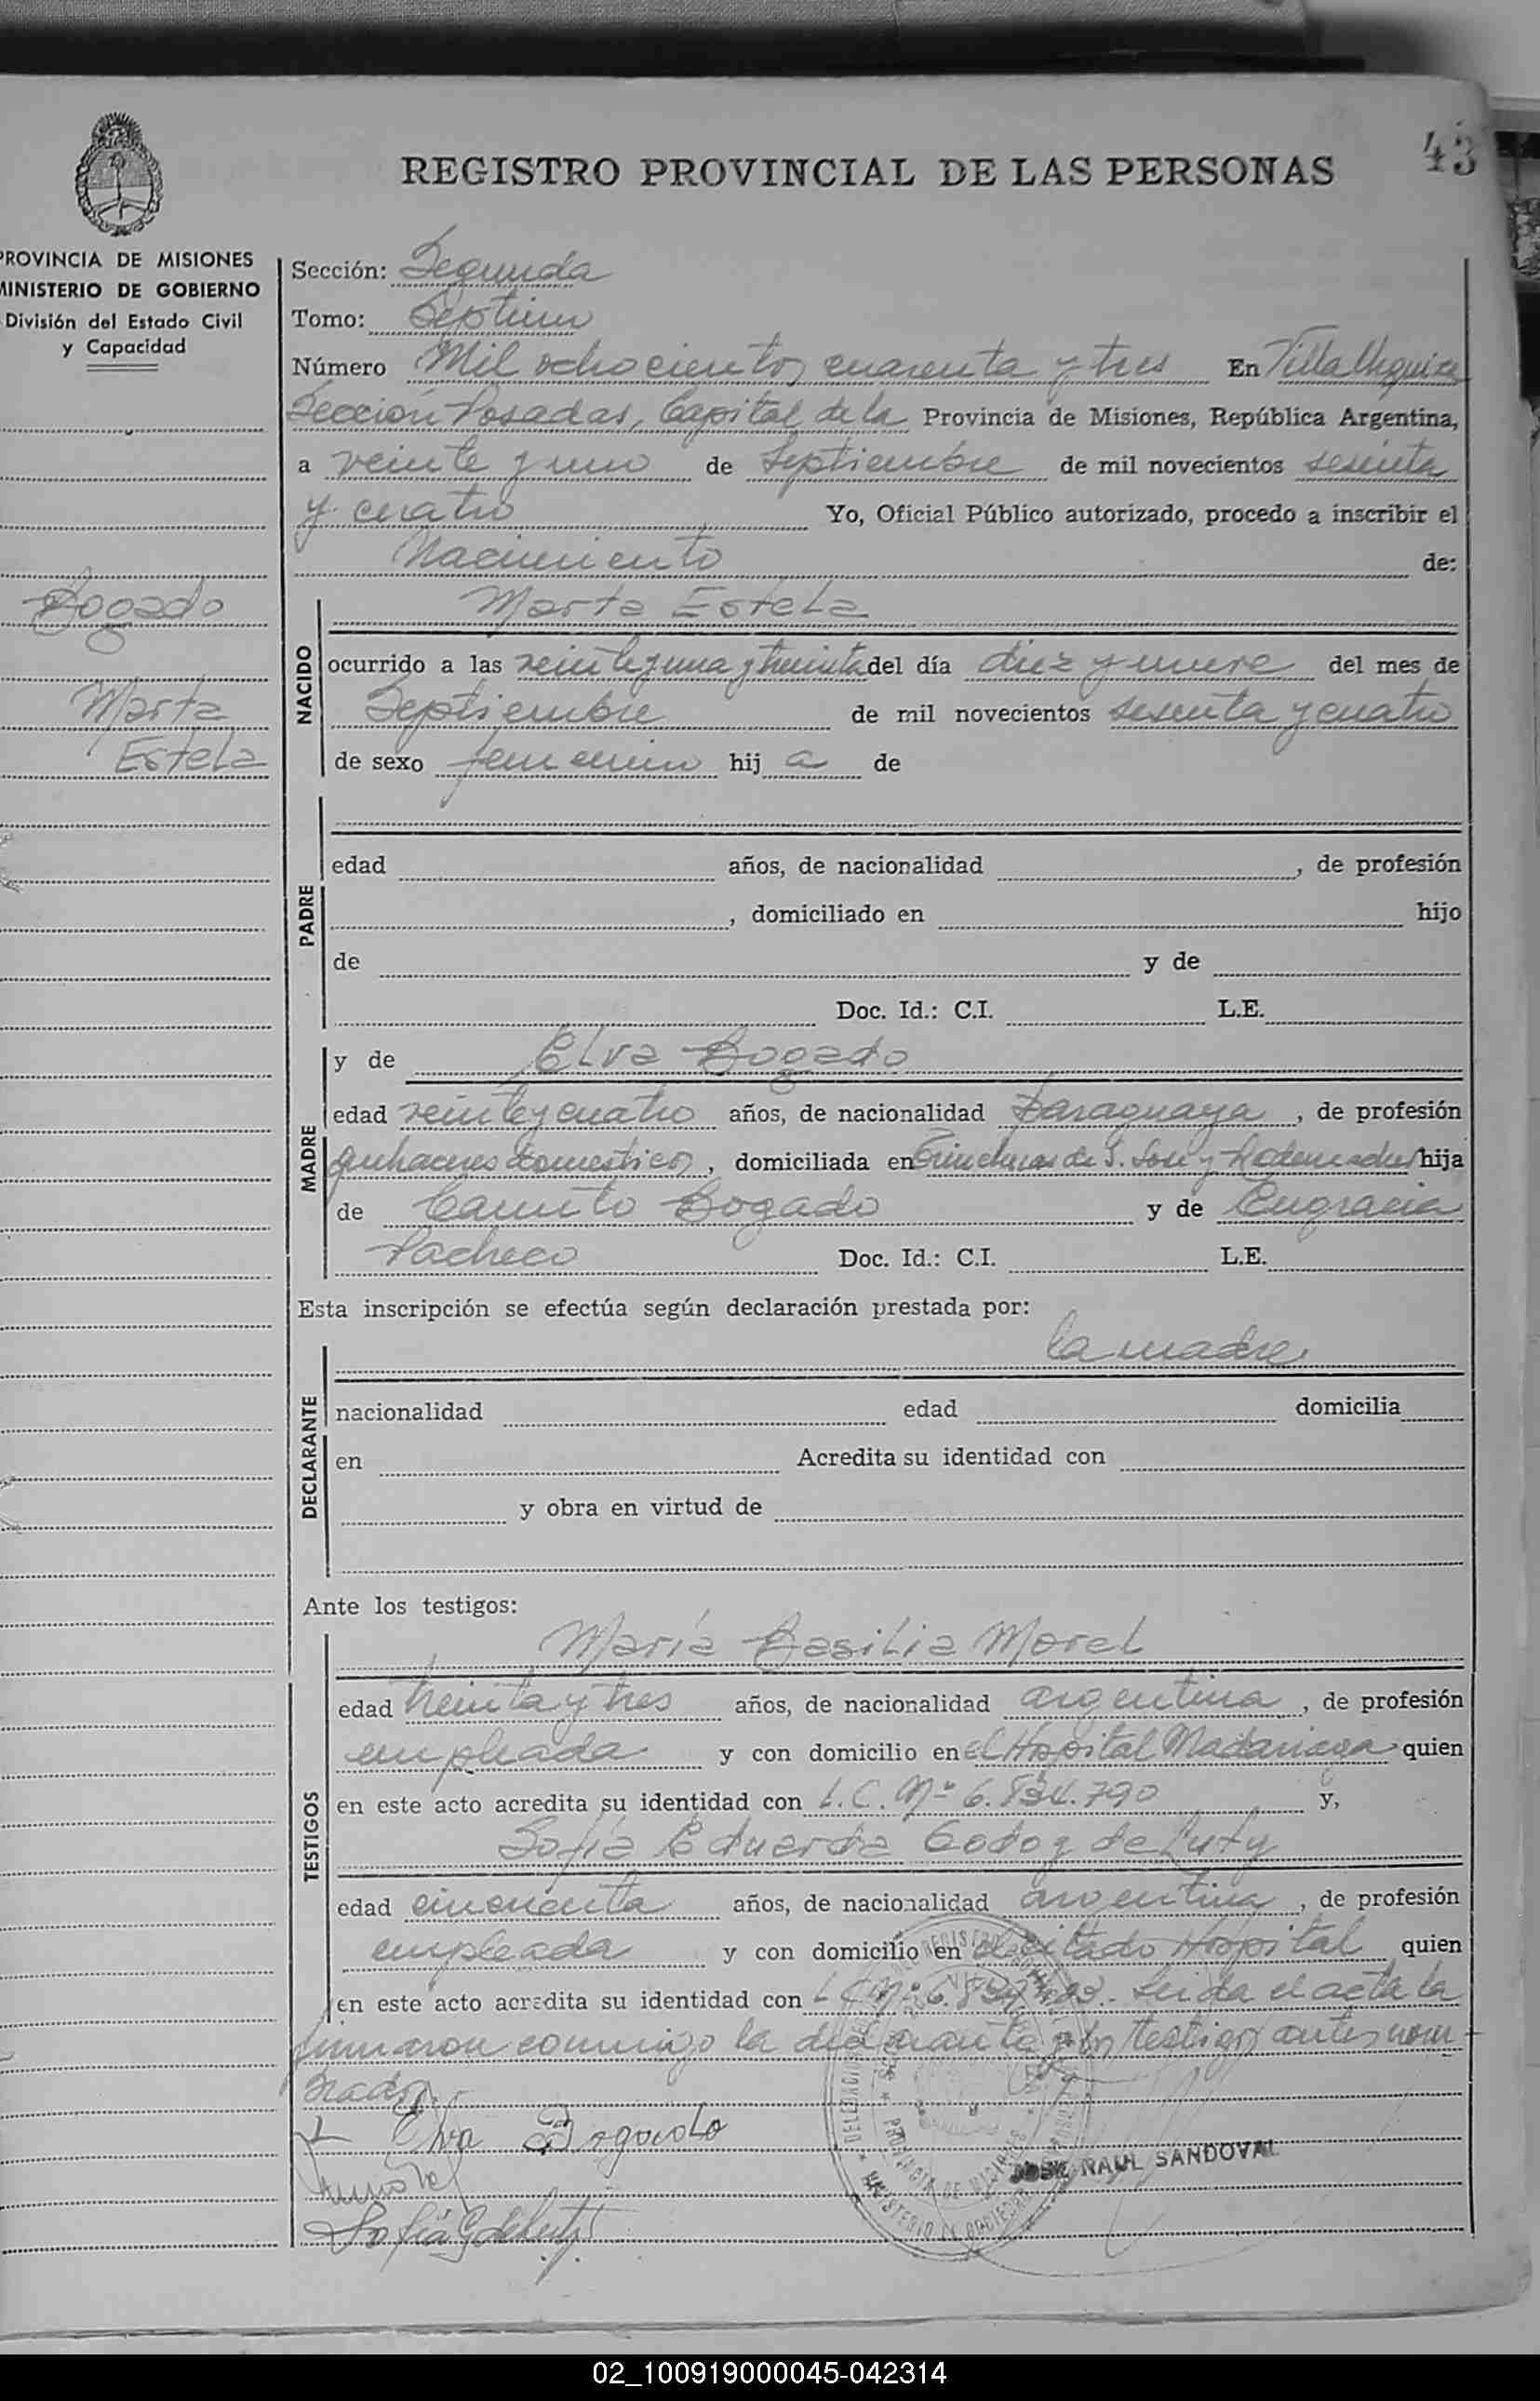 43
REGISTRO PROVINCIAL DE LAS PERSONAS
PROVINCIA DE MISIONES
MINISTERIO DE GOBIERNO
División del Estado Civil
y Capacidad
Bogado
Marta
Estela
Sección: Segunda
Tomo: Septimo
Número Mil ochocientos cuarenta y tres En Villa Urquiza
Sección Posadas, Capital de la Provincia de Misiones, República Argentina,
a veinte y uno de Septiembre de mil novecientos sesenta
y cuatro Yo, Oficial Público autorizado, procedo a inscribir el
Nacimiento de:
NACIDO
Marta Estela
ocurrido a las veinte y una y treinta del día diez y nueve del mes de
Septiembre de mil novecientos sesenta y cuatro
de sexo femenino hij a de
PADRE
edad años, de nacionalidad , de profesión
, domiciliado en hijo
de y de
Doc. Id.: C.I. L.E.
MADRE
y de Elva Bogado
edad veinte y cuatro años, de nacionalidad Paraguaya , de profesión
quehaceres domesticos , domiciliada en Trincheras de S. José y hija
de Bogado y de Engracia
Pacheco Doc. Id.: C.I. L.E.
Esta inscripción se efectúa según declaración prestada por:
la madre
DECLARANTE
nacionalidad edad domicilia
en Acredita su identidad con
y obra en virtud de
Ante los testigos:
TESTIGOS
María Basilia Morel
edad treinta y tres años, de nacionalidad argentina , de profesión
empleada y con domicilio en el Hospital Madariaga quien
en este acto acredita su identidad con L.C. Nº 6.834.790 y,
Sofía Eduarda Godoy de
edad cincuenta años, de nacionalidad argentina , de profesión
empleada y con domicilio en el citado Hospital quien
en este acto acredita su identidad con L.C. Nº Leida el acta la
firmaron conmigo la declarante y los testigos antes nom-
brados.
Elva Bogado
JOSE RAUL SANDOVAL
02_100919000045-042314